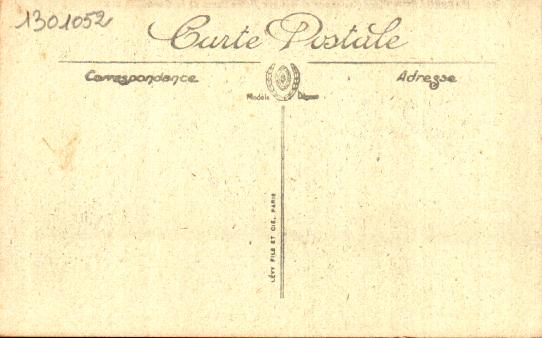 1301052
Carte Postale
Correspondance
Adresse
Modèle Déposé
LÉVY FILS ET CIE, PARIS